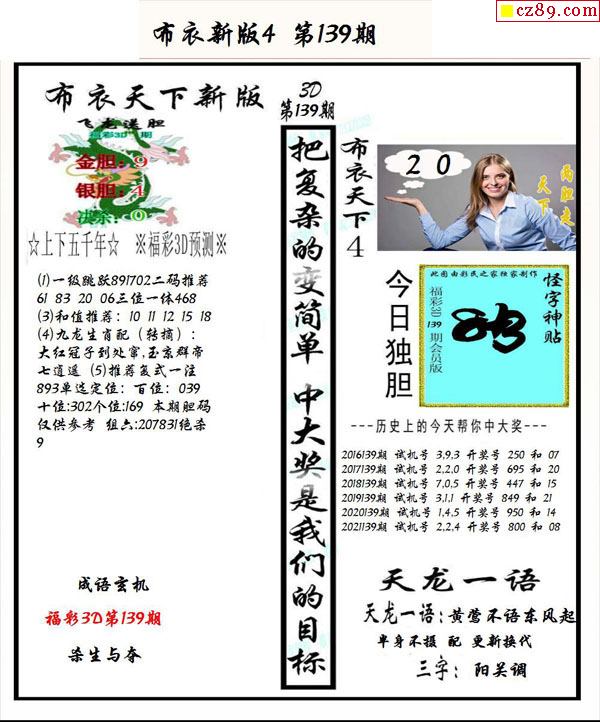 cz89.com
布衣新版4 第139期
布衣天下新版
飞龙送胆
福彩3D 期
金胆：9
银胆：4
决杀：0
☆上下五千年☆ ※福彩3D预测※
(1)一级跳跃891702二码推荐
61 83 20 06三位一体468
(3)和值推荐：10 11 12 15 18
(4)九龙生肖配（转摘）：
大红冠子到处窜,玉京群帝
七逍遥 (5)推荐复式一注
893单选定位：百位：039
十位:302个位:169 本期胆码
仅供参考 组六:207831绝杀
9
成语玄机
福彩3D第139期
杀生与夺
3D
第139期
把复杂的变简单 中大奖是我们的目标
布衣天下4
20
两胆走天下
今日独胆
此图由彩民之家独家制作
怪字神贴
福彩3D 139 期会员版
---历史上的今天帮你中大奖---
2016139期 试机号 3,9,3 开奖号 250 和 07
2017139期 试机号 2,2,0 开奖号 695 和 20
2018139期 试机号 7,0,5 开奖号 447 和 15
2019139期 试机号 3,1,1 开奖号 849 和 21
2020139期 试机号 1,4,5 开奖号 950 和 14
2021139期 试机号 2,2,4 开奖号 800 和 08
天龙一语
天龙一语：黄莺不语东风起
半身不摄 配 更新换代
三字：阳关调